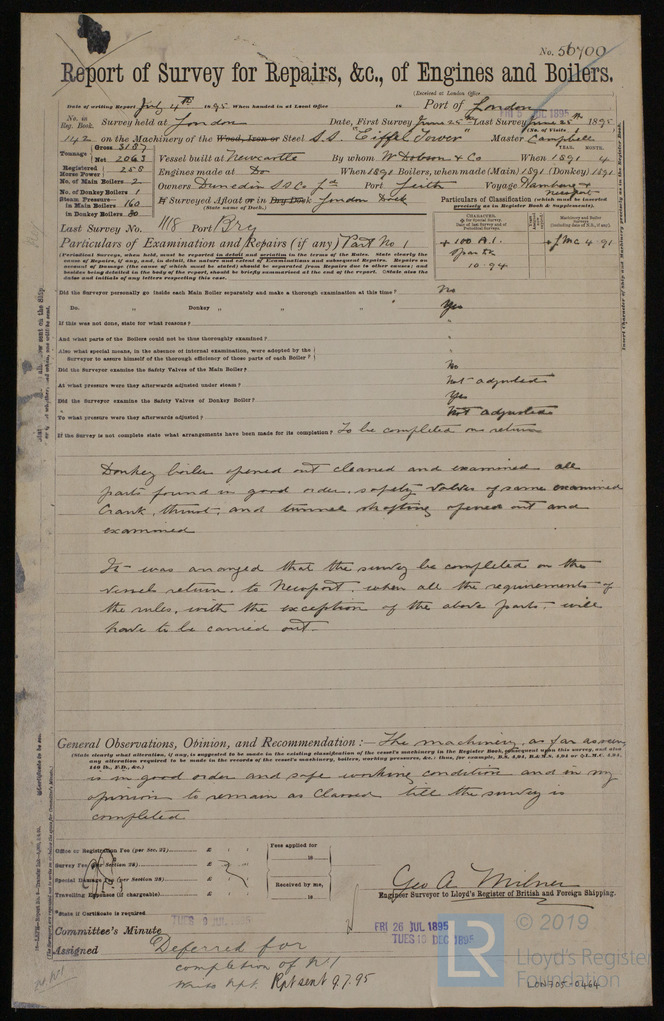 No. 56700
Report of Survey for Repairs, &c., of Engines and Boilers.
(Received at London Office
Date of writing Report July 4th 1895 When handed in at Local Office 18 Port of London
FRI 5 JUL 1895
No. in Eng. Book. Survey held at London Date, First Survey June 25th Last Survey June 25th 1895
(No. of Visits 1
142 on the Machinery of the Wood, Iron or Steel S.S. "Eiffel Tower" Master Campbell
Tonnage Gross 3187
Net 2063
Vessel built at Newcastle By whom W Dobson & Co When 1891 4
YEAR. MONTH.
Registered Horse Power 258
Engines made at Do When 1891 Boilers, when made (Main) 1891 (Donkey) 1891
No. of Main Boilers 2
Owners Dunedin SS Co Ld Port Leith Voyage
No. of Donkey Boilers 1
Steam Pressure in Main Boilers 160
in Donkey Boilers 80
If Surveyed Afloat or in Dry Dock London Dock
(State name of Dock.)
Particulars of Classification (which must be inserted precisely as in Register Book & Supplements).
Last Survey No. 1118 Port Bry
Particulars of Examination and Repairs (if any) Part No 1
+ 100 A.1.
spar dk
10.94
+ LMC 4.91
Did the Surveyor personally go inside each Main Boiler separately and make a thorough examination at this time? No
Do. „ Donkey „ „ „ „ Yes
If this was not done, state for what reasons? "
And what parts of the Boilers could not be thus thoroughly examined? "
Also what special means, in the absence of internal examination, were adopted by the Surveyor to assure himself of the thorough efficiency of those parts of each Boiler? "
Did the Surveyor examine the Safety Valves of the Main Boiler? No
At what pressure were they afterwards adjusted under steam? Not adjusted
Did the Surveyor examine the Safety Valves of Donkey Boiler? Yes
To what pressure were they afterwards adjusted? Not adjusted
If the Survey is not complete state what arrangements have been made for its completion? To be completed on return
Donkey boiler opened out cleaned and examined all
parts found in good order. safety valves of same examined
Crank, thrust, and tunnel shafting opened out and
examined
It was arranged that the survey be completed on the
vessels return, to Newport, when all the requirements of
the rules, with the exception of the above parts, will
have to be carried out.
General Observations, Opinion, and Recommendation:— The machinery, as far as seen
(State clearly what alteration, if any, is suggested to be made in the existing classification of the vessel's machinery in the Register Book, consequent upon this survey, and also
any alteration required to be made in the records of the vessel's machinery, boilers, working pressures, &c.; thus, for example, B.S. 4,94, B.&M.S. 4,94 or +L.M.C. 4,94,
140 lb., F.D., &c.)
is in good order and safe working condition and in my
opinion to remain as Classed till the survey is
completed
Office or Registration Fee (per Sec. 27) £ : :
Survey Fee (per Section 28) £ : :
Special Damage Fee (per Section 28) £ : :
Travelling Expenses (if chargeable) £ : :
Fees applied for
18
Received by me,
18
Geo A. Milner
Engineer Surveyor to Lloyd's Register of British and Foreign Shipping.
*State if Certificate is required
Committee's Minute
TUES 9 JUL 1895
FRI 26 JUL 1895
TUES 10 DEC 1895
Assigned Deferred for
completion of No 1
Rpt sent 9.7.95
© 2019
LR
Lloyd's Register
Foundation
LON705-0464